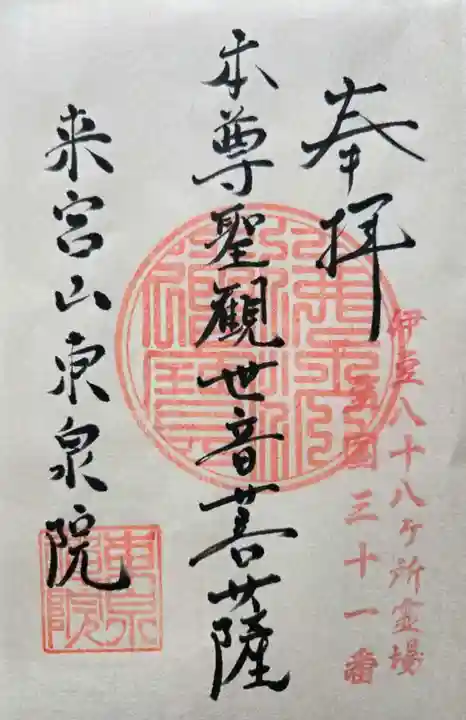 奉拝
伊豆八十八ケ所霊場
第四三十一番
本尊聖観世音菩薩
来宮山東泉院
東泉院